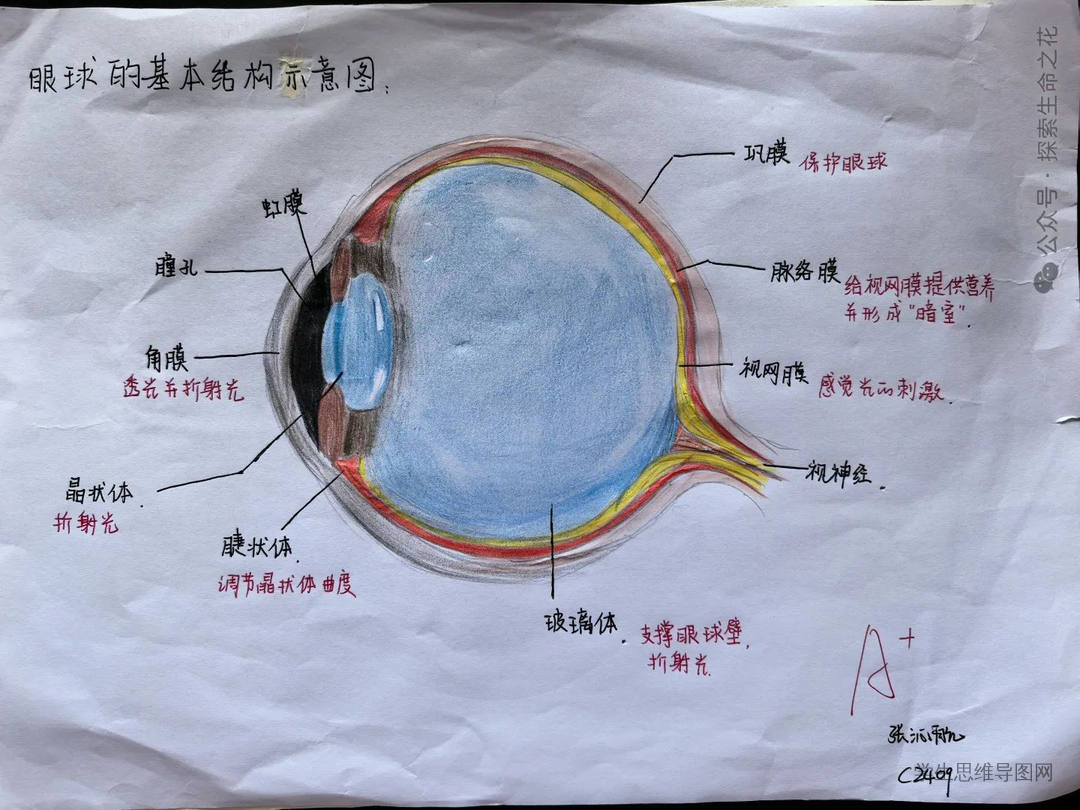 眼球的基本结构示意图:
公众号·探索生命之花
巩膜 保护眼球
虹膜
瞳孔
脉络膜 给视网膜提供营养
并形成"暗室".
角膜
透光并折射光
视网膜 感觉光的刺激.
视神经.
晶状体.
折射光
睫状体.
调节晶状体曲度
玻璃体. 支撑眼球壁,
折射光.
A+
C2409
学生思维导图网